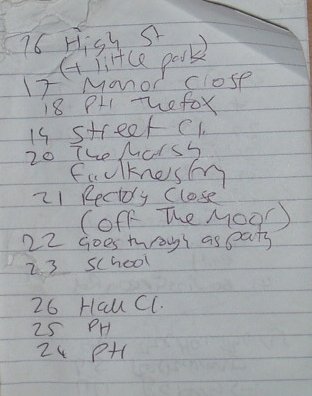 16 High St
(+ little park)
17 Manor Close
18 PH The fox
19 Street Cl.
20 The Marsh
Faulkners Fm
21 Rectory Close
(off The Moor)
22 Goes through as path
23 School
26 Hall Cl.
25 PH
24 PH